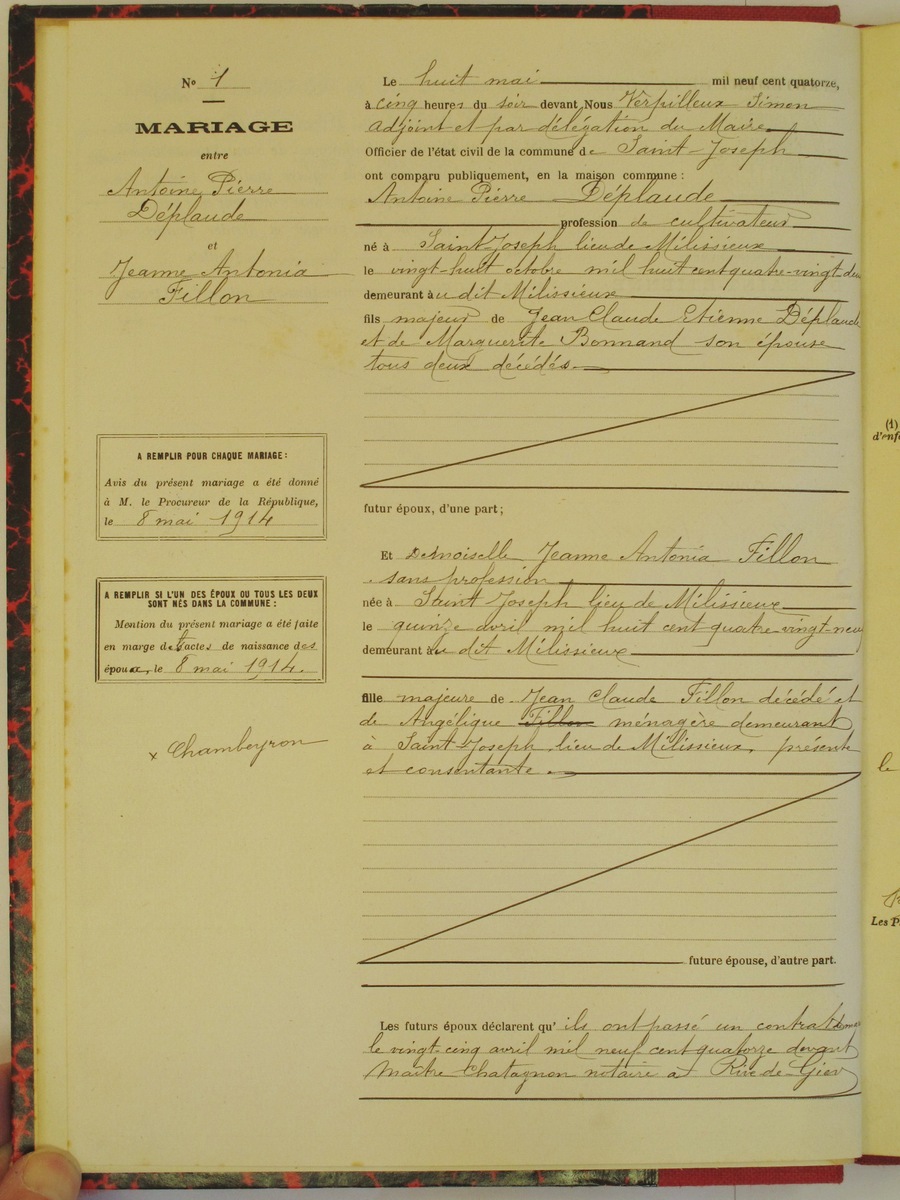 N° 1
MARIAGE
entre
Antoine Pierre
Déplaude
et
Jeanne Antonia
Fillon
A REMPLIR POUR CHAQUE MARIAGE :
Avis du présent mariage a été donné
à M. le Procureur de la République,
le 8 mai 1914
A REMPLIR SI L'UN DES ÉPOUX OU TOUS LES DEUX
SONT NÉS DANS LA COMMUNE :
Mention du présent mariage a été faite
en marge des actes de naissance des
époux, le 8 mai 1914.
x Chambeyron
Le huit mai mil neuf cent quatorze,
à cinq heures du soir devant Nous Verpilleux Simon
adjoint et par délégation du Maire
Officier de l'état civil de la commune de Saint-Joseph
ont comparu publiquement, en la maison commune :
Antoine Pierre Déplaude
profession de cultivateur
né à Saint-Joseph lieu de Milissieux
le vingt-huit octobre mil huit cent quatre-vingt-
demeurant au dit Milissieux
fils majeur de Jean Claude Etienne Déplaude
et de Marguerite Bonnand son épouse
tous deux décédés.
futur époux, d'une part ;
Et Demoiselle Jeanne Antonia Fillon
sans profession
née à Saint-Joseph lieu de Milissieux
le quinze avril mil huit cent quatre-vingt-neuf
demeurant au dit Milissieux
fille majeure de Jean Claude Fillon décédé et
de Angélique Fillon ménagère demeurant
à Saint-Joseph lieu de Milissieux, présente
et consentante.
future épouse, d'autre part.
Les futurs époux déclarent qu'ils ont passé un contrat
le vingt-cinq avril mil neuf cent quatorze devant
Maître Chatagnon notaire à Rive-de-Gier
(1)
d'enf
le
Les P